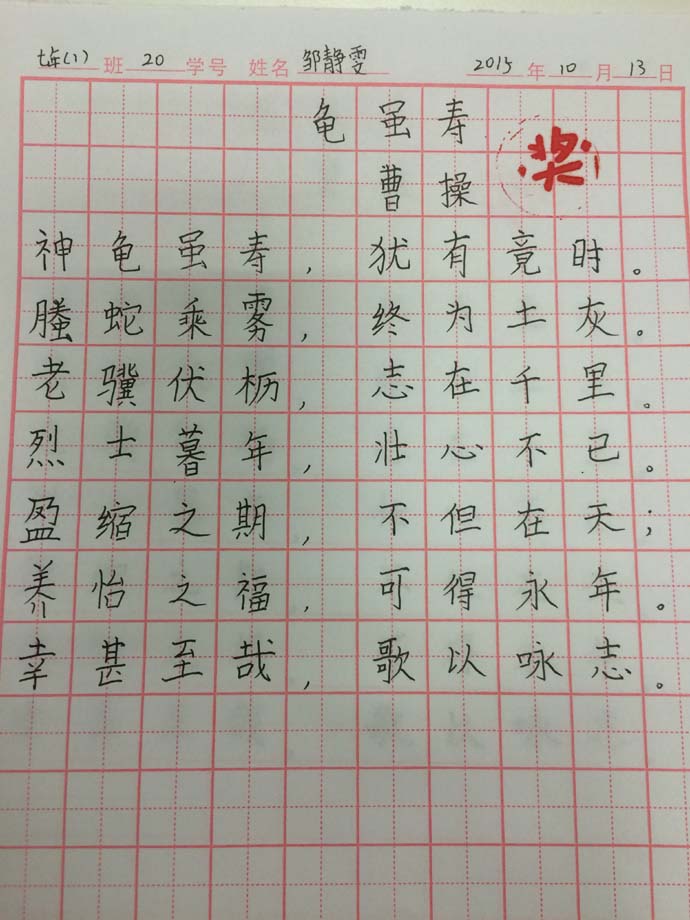 七年(1)班 20 学号 姓名 邹静雯 2015年10月13日
龟虽寿
奖
曹操
神龟虽寿,犹有竟时。
螣蛇乘雾,终为土灰。
老骥伏枥,志在千里。
烈士暮年,壮心不已。
盈缩之期,不但在天;
养怡之福,可得永年。
幸甚至哉,歌以咏志。